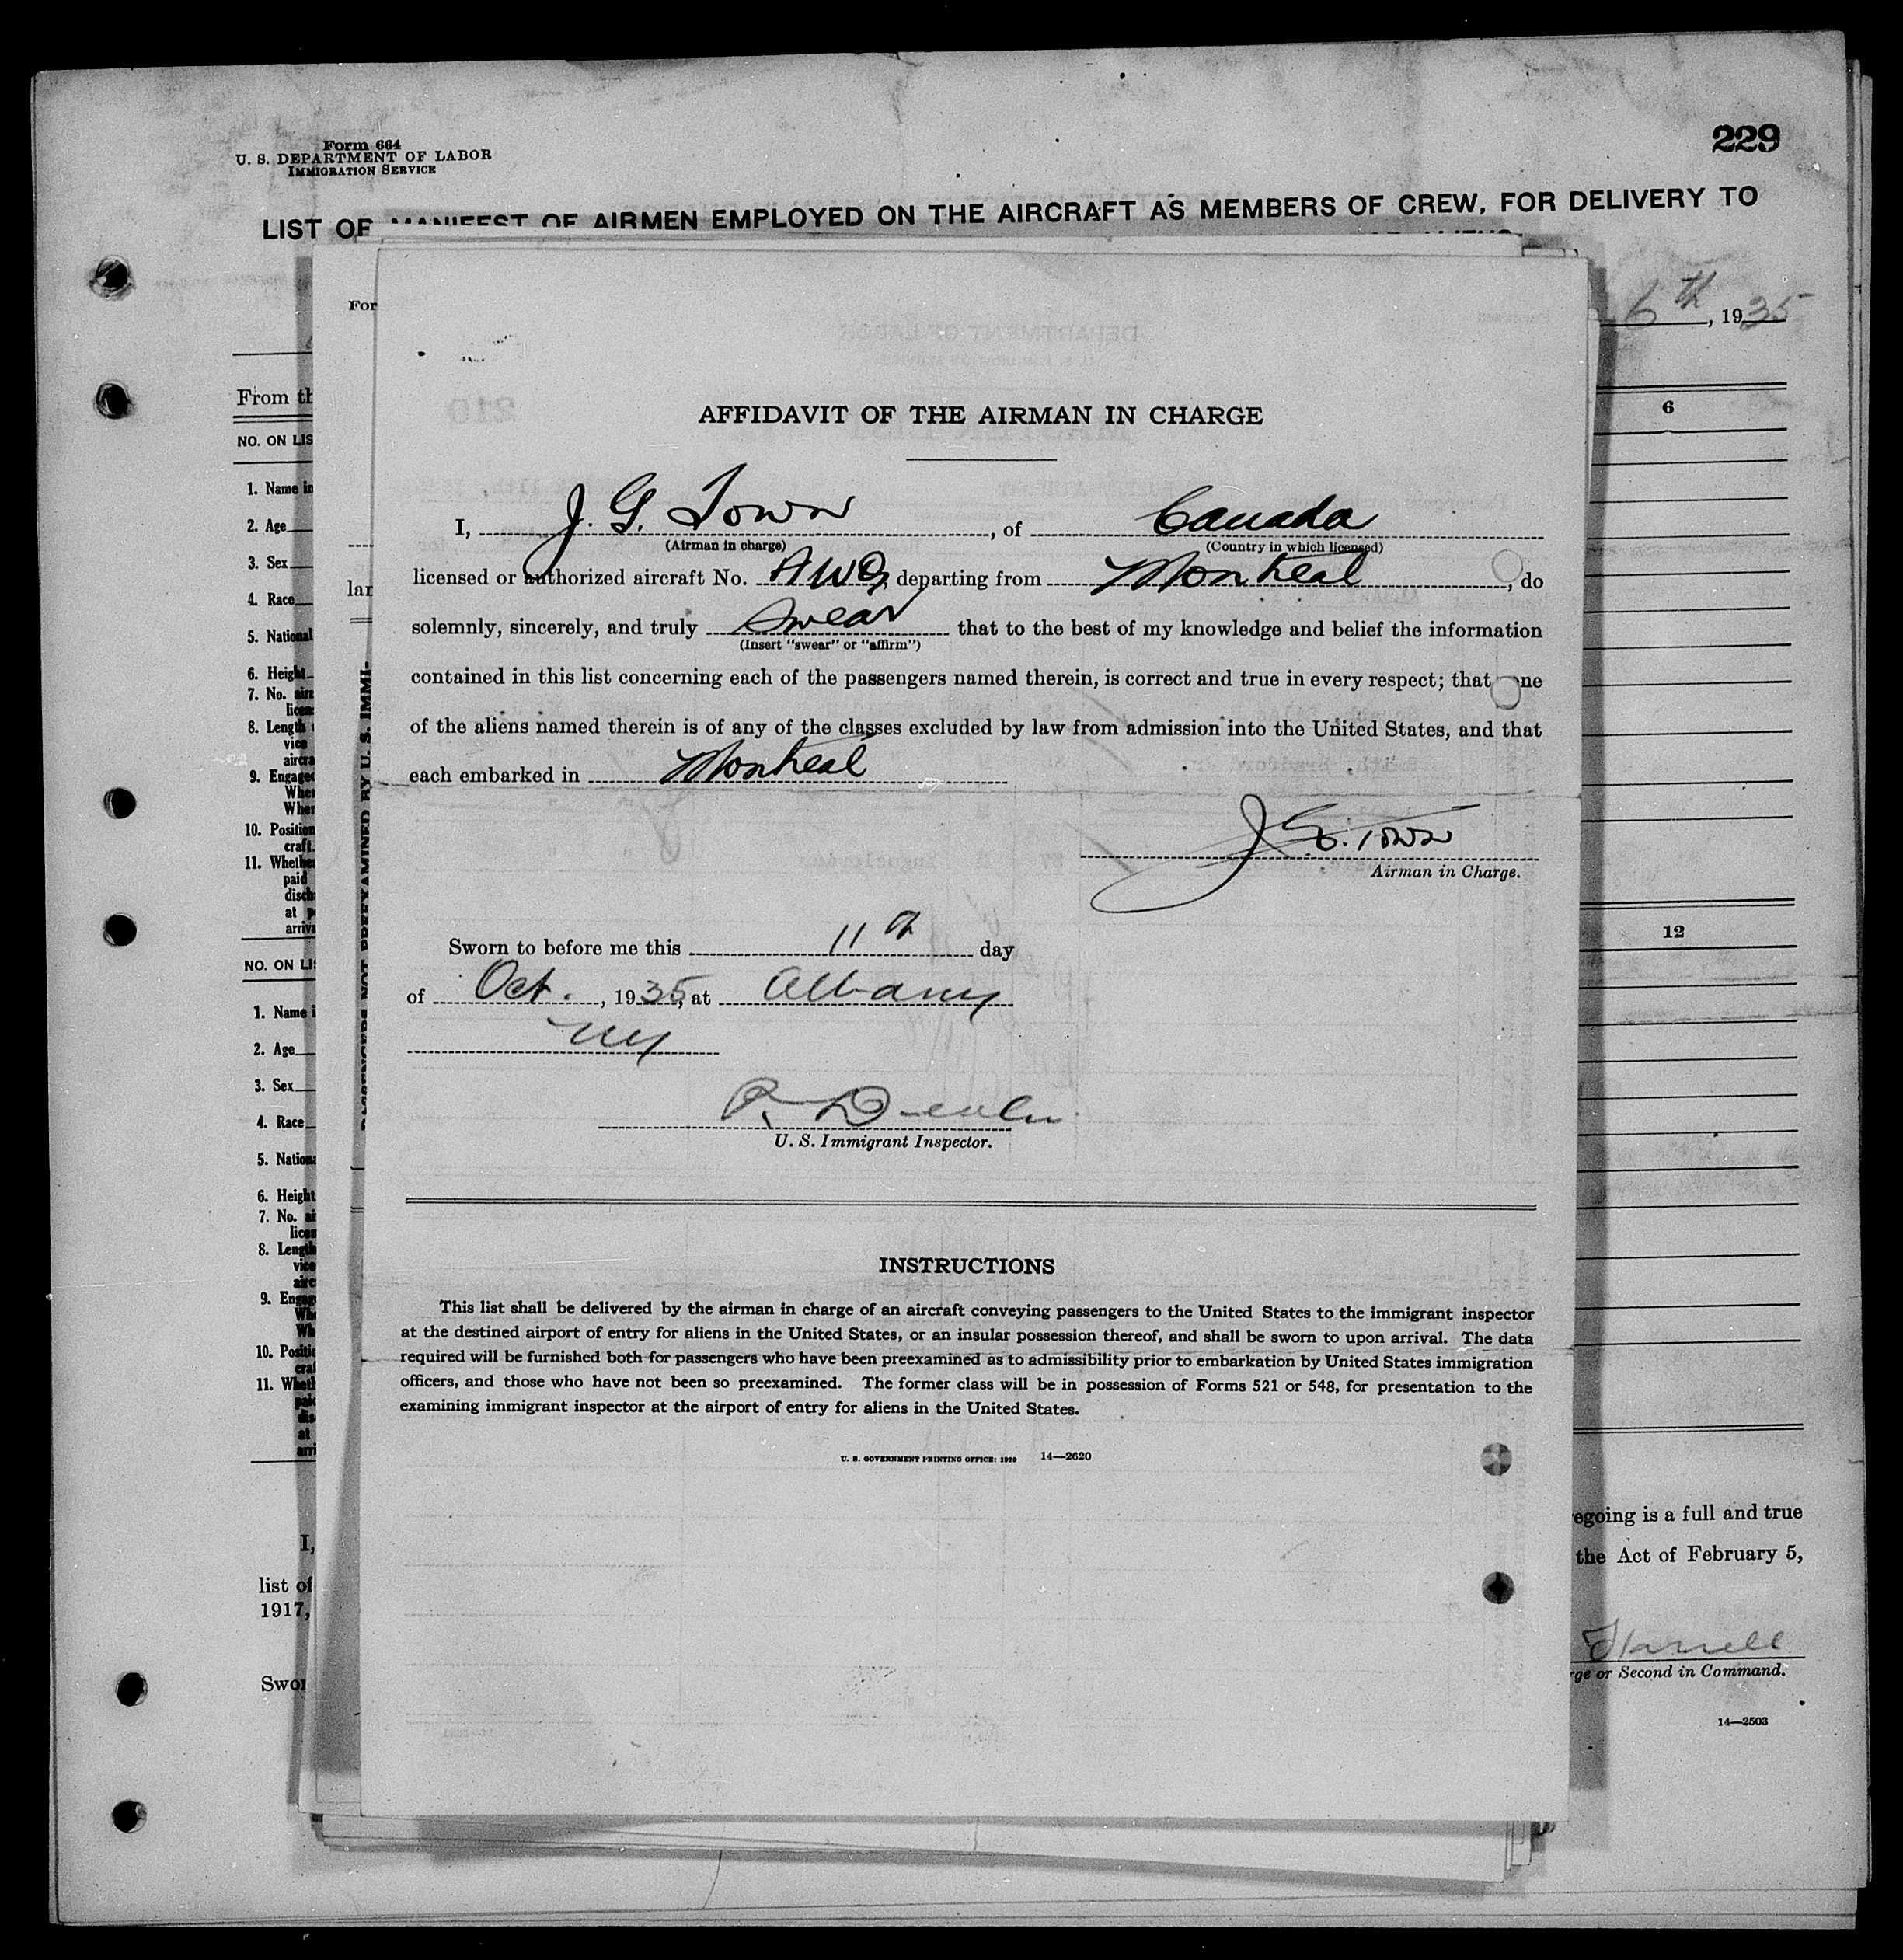 Form 664
U. S. DEPARTMENT OF LABOR
IMMIGRATION SERVICE
229
LIST OR MANIFEST OF AIRMEN EMPLOYED ON THE AIRCRAFT AS MEMBERS OF CREW, FOR DELIVERY TO
6th, 1935
For
From th
lar
NO. ON LIS
6
1. Name in
2. Age
3. Sex
4. Race
5. National
6. Height
7. No. air
licen
8. Length
vice
aircra
9. Engaged
Whe
Wher
10. Position
craft.
11. Whethe
paid
disch
at p
arriva
NO. ON LI
12
1. Name i
2. Age
3. Sex
4. Race
5. Nationa
6. Height
7. No. ai
licen
8. Length
vice
airc
9. Engag
Whe
Wh
10. Positio
craf
11. Wheth
paid
dis
at
arri
I,
list of
1917,
Swor
AFFIDAVIT OF THE AIRMAN IN CHARGE
I, J. G. Town, of Canada
(Airman in charge) (Country in which licensed)
licensed or authorized aircraft No. AWG, departing from Montreal, do
solemnly, sincerely, and truly swear that to the best of my knowledge and belief the information
(Insert "swear" or "affirm")
contained in this list concerning each of the passengers named therein, is correct and true in every respect; that none
of the aliens named therein is of any of the classes excluded by law from admission into the United States, and that
each embarked in Montreal
J. G. Town
Airman in Charge.
Sworn to before me this 11th day
of Oct., 1935, at Albany
NY
U. S. Immigrant Inspector.
INSTRUCTIONS
This list shall be delivered by the airman in charge of an aircraft conveying passengers to the United States to the immigrant inspector
at the destined airport of entry for aliens in the United States, or an insular possession thereof, and shall be sworn to upon arrival. The data
required will be furnished both for passengers who have been preexamined as to admissibility prior to embarkation by United States immigration
officers, and those who have not been so preexamined. The former class will be in possession of Forms 521 or 548, for presentation to the
examining immigrant inspector at the airport of entry for aliens in the United States.
U. S. GOVERNMENT PRINTING OFFICE: 1929 14—2620
egoing is a full and true
the Act of February 5,
rge or Second in Command.
14—2503